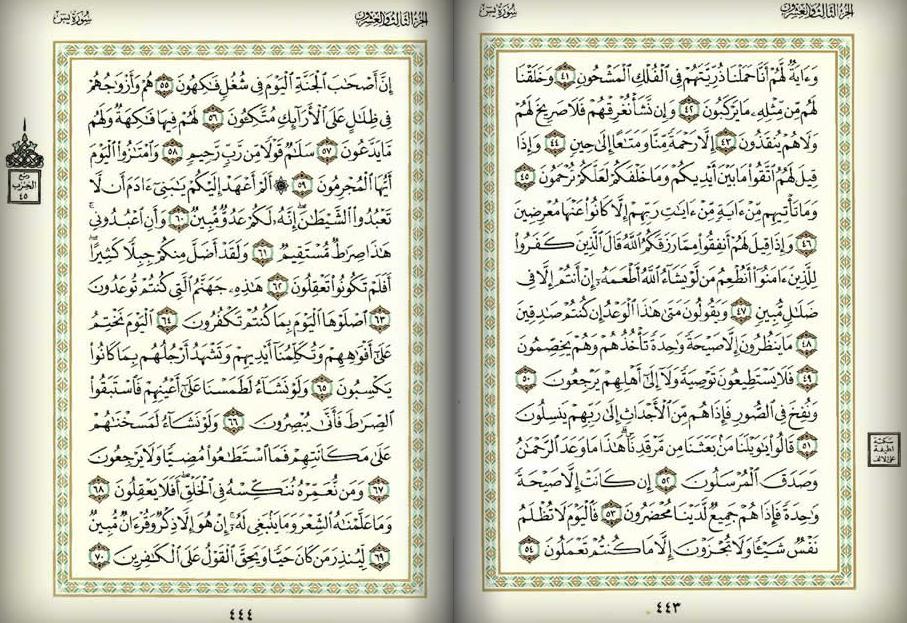 الجزء الثالث والعشرون
سورة يس
وَءَايَةٌ لَّهُمْ أَنَّا حَمَلْنَا ذُرِّيَّتَهُمْ فِى ٱلْفُلْكِ ٱلْمَشْحُونِ ٤١ وَخَلَقْنَا
لَهُم مِّن مِّثْلِهِۦ مَا يَرْكَبُونَ ٤٢ وَإِن نَّشَأْ نُغْرِقْهُمْ فَلَا صَرِيخَ لَهُمْ
وَلَا هُمْ يُنقَذُونَ ٤٣ إِلَّا رَحْمَةً مِّنَّا وَمَتَٰعًا إِلَىٰ حِينٍ ٤٤ وَإِذَا
قِيلَ لَهُمُ ٱتَّقُوا۟ مَا بَيْنَ أَيْدِيكُمْ وَمَا خَلْفَكُمْ لَعَلَّكُمْ تُرْحَمُونَ ٤٥
وَمَا تَأْتِيهِم مِّنْ ءَايَةٍ مِّنْ ءَايَٰتِ رَبِّهِمْ إِلَّا كَانُوا۟ عَنْهَا مُعْرِضِينَ
٤٦ وَإِذَا قِيلَ لَهُمْ أَنفِقُوا۟ مِمَّا رَزَقَكُمُ ٱللَّهُ قَالَ ٱلَّذِينَ كَفَرُوا۟
لِلَّذِينَ ءَامَنُوٓا۟ أَنُطْعِمُ مَن لَّوْ يَشَآءُ ٱللَّهُ أَطْعَمَهُۥٓ إِنْ أَنتُمْ إِلَّا فِى
ضَلَٰلٍ مُّبِينٍ ٤٧ وَيَقُولُونَ مَتَىٰ هَٰذَا ٱلْوَعْدُ إِن كُنتُمْ صَٰدِقِينَ
٤٨ مَا يَنظُرُونَ إِلَّا صَيْحَةً وَٰحِدَةً تَأْخُذُهُمْ وَهُمْ يَخِصِّمُونَ
٤٩ فَلَا يَسْتَطِيعُونَ تَوْصِيَةً وَلَآ إِلَىٰٓ أَهْلِهِمْ يَرْجِعُونَ ٥٠
وَنُفِخَ فِى ٱلصُّورِ فَإِذَا هُم مِّنَ ٱلْأَجْدَاثِ إِلَىٰ رَبِّهِمْ يَنسِلُونَ
٥١ قَالُوا۟ يَٰوَيْلَنَا مَنۢ بَعَثَنَا مِن مَّرْقَدِنَا ۜ هَٰذَا مَا وَعَدَ ٱلرَّحْمَٰنُ
وَصَدَقَ ٱلْمُرْسَلُونَ ٥٢ إِن كَانَتْ إِلَّا صَيْحَةً
وَٰحِدَةً فَإِذَا هُمْ جَمِيعٌ لَّدَيْنَا مُحْضَرُونَ ٥٣ فَٱلْيَوْمَ لَا تُظْلَمُ
نَفْسٌ شَيْـًٔا وَلَا تُجْزَوْنَ إِلَّا مَا كُنتُمْ تَعْمَلُونَ ٥٤
سكتة
لطيفة
على الألف
٤٤٣
الجزء الثالث والعشرون
سورة يس
إِنَّ أَصْحَٰبَ ٱلْجَنَّةِ ٱلْيَوْمَ فِى شُغُلٍ فَٰكِهُونَ ٥٥ هُمْ وَأَزْوَٰجُهُمْ
فِى ظِلَٰلٍ عَلَى ٱلْأَرَآئِكِ مُتَّكِـُٔونَ ٥٦ لَهُمْ فِيهَا فَٰكِهَةٌ وَلَهُم
مَّا يَدَّعُونَ ٥٧ سَلَٰمٌ قَوْلًا مِّن رَّبٍّ رَّحِيمٍ ٥٨ وَٱمْتَٰزُوا۟ ٱلْيَوْمَ
أَيُّهَا ٱلْمُجْرِمُونَ ٥٩ ۞ أَلَمْ أَعْهَدْ إِلَيْكُمْ يَٰبَنِىٓ ءَادَمَ أَن لَّا
تَعْبُدُوا۟ ٱلشَّيْطَٰنَ ۖ إِنَّهُۥ لَكُمْ عَدُوٌّ مُّبِينٌ ٦٠ وَأَنِ ٱعْبُدُونِى ۚ
هَٰذَا صِرَٰطٌ مُّسْتَقِيمٌ ٦١ وَلَقَدْ أَضَلَّ مِنكُمْ جِبِلًّا كَثِيرًا ۖ
أَفَلَمْ تَكُونُوا۟ تَعْقِلُونَ ٦٢ هَٰذِهِۦ جَهَنَّمُ ٱلَّتِى كُنتُمْ تُوعَدُونَ
٦٣ ٱصْلَوْهَا ٱلْيَوْمَ بِمَا كُنتُمْ تَكْفُرُونَ ٦٤ ٱلْيَوْمَ نَخْتِمُ
عَلَىٰٓ أَفْوَٰهِهِمْ وَتُكَلِّمُنَآ أَيْدِيهِمْ وَتَشْهَدُ أَرْجُلُهُم بِمَا كَانُوا۟
يَكْسِبُونَ ٦٥ وَلَوْ نَشَآءُ لَطَمَسْنَا عَلَىٰٓ أَعْيُنِهِمْ فَٱسْتَبَقُوا۟
ٱلصِّرَٰطَ فَأَنَّىٰ يُبْصِرُونَ ٦٦ وَلَوْ نَشَآءُ لَمَسَخْنَٰهُمْ
عَلَىٰ مَكَانَتِهِمْ فَمَا ٱسْتَطَٰعُوا۟ مُضِيًّا وَلَا يَرْجِعُونَ
٦٧ وَمَن نُّعَمِّرْهُ نُنَكِّسْهُ فِى ٱلْخَلْقِ ۖ أَفَلَا يَعْقِلُونَ ٦٨
وَمَا عَلَّمْنَٰهُ ٱلشِّعْرَ وَمَا يَنۢبَغِى لَهُۥٓ ۚ إِنْ هُوَ إِلَّا ذِكْرٌ وَقُرْءَانٌ مُّبِينٌ
٦٩ لِّيُنذِرَ مَن كَانَ حَيًّا وَيَحِقَّ ٱلْقَوْلُ عَلَى ٱلْكَٰفِرِينَ ٧٠
ربع
الحزب
٤٥
٤٤٤